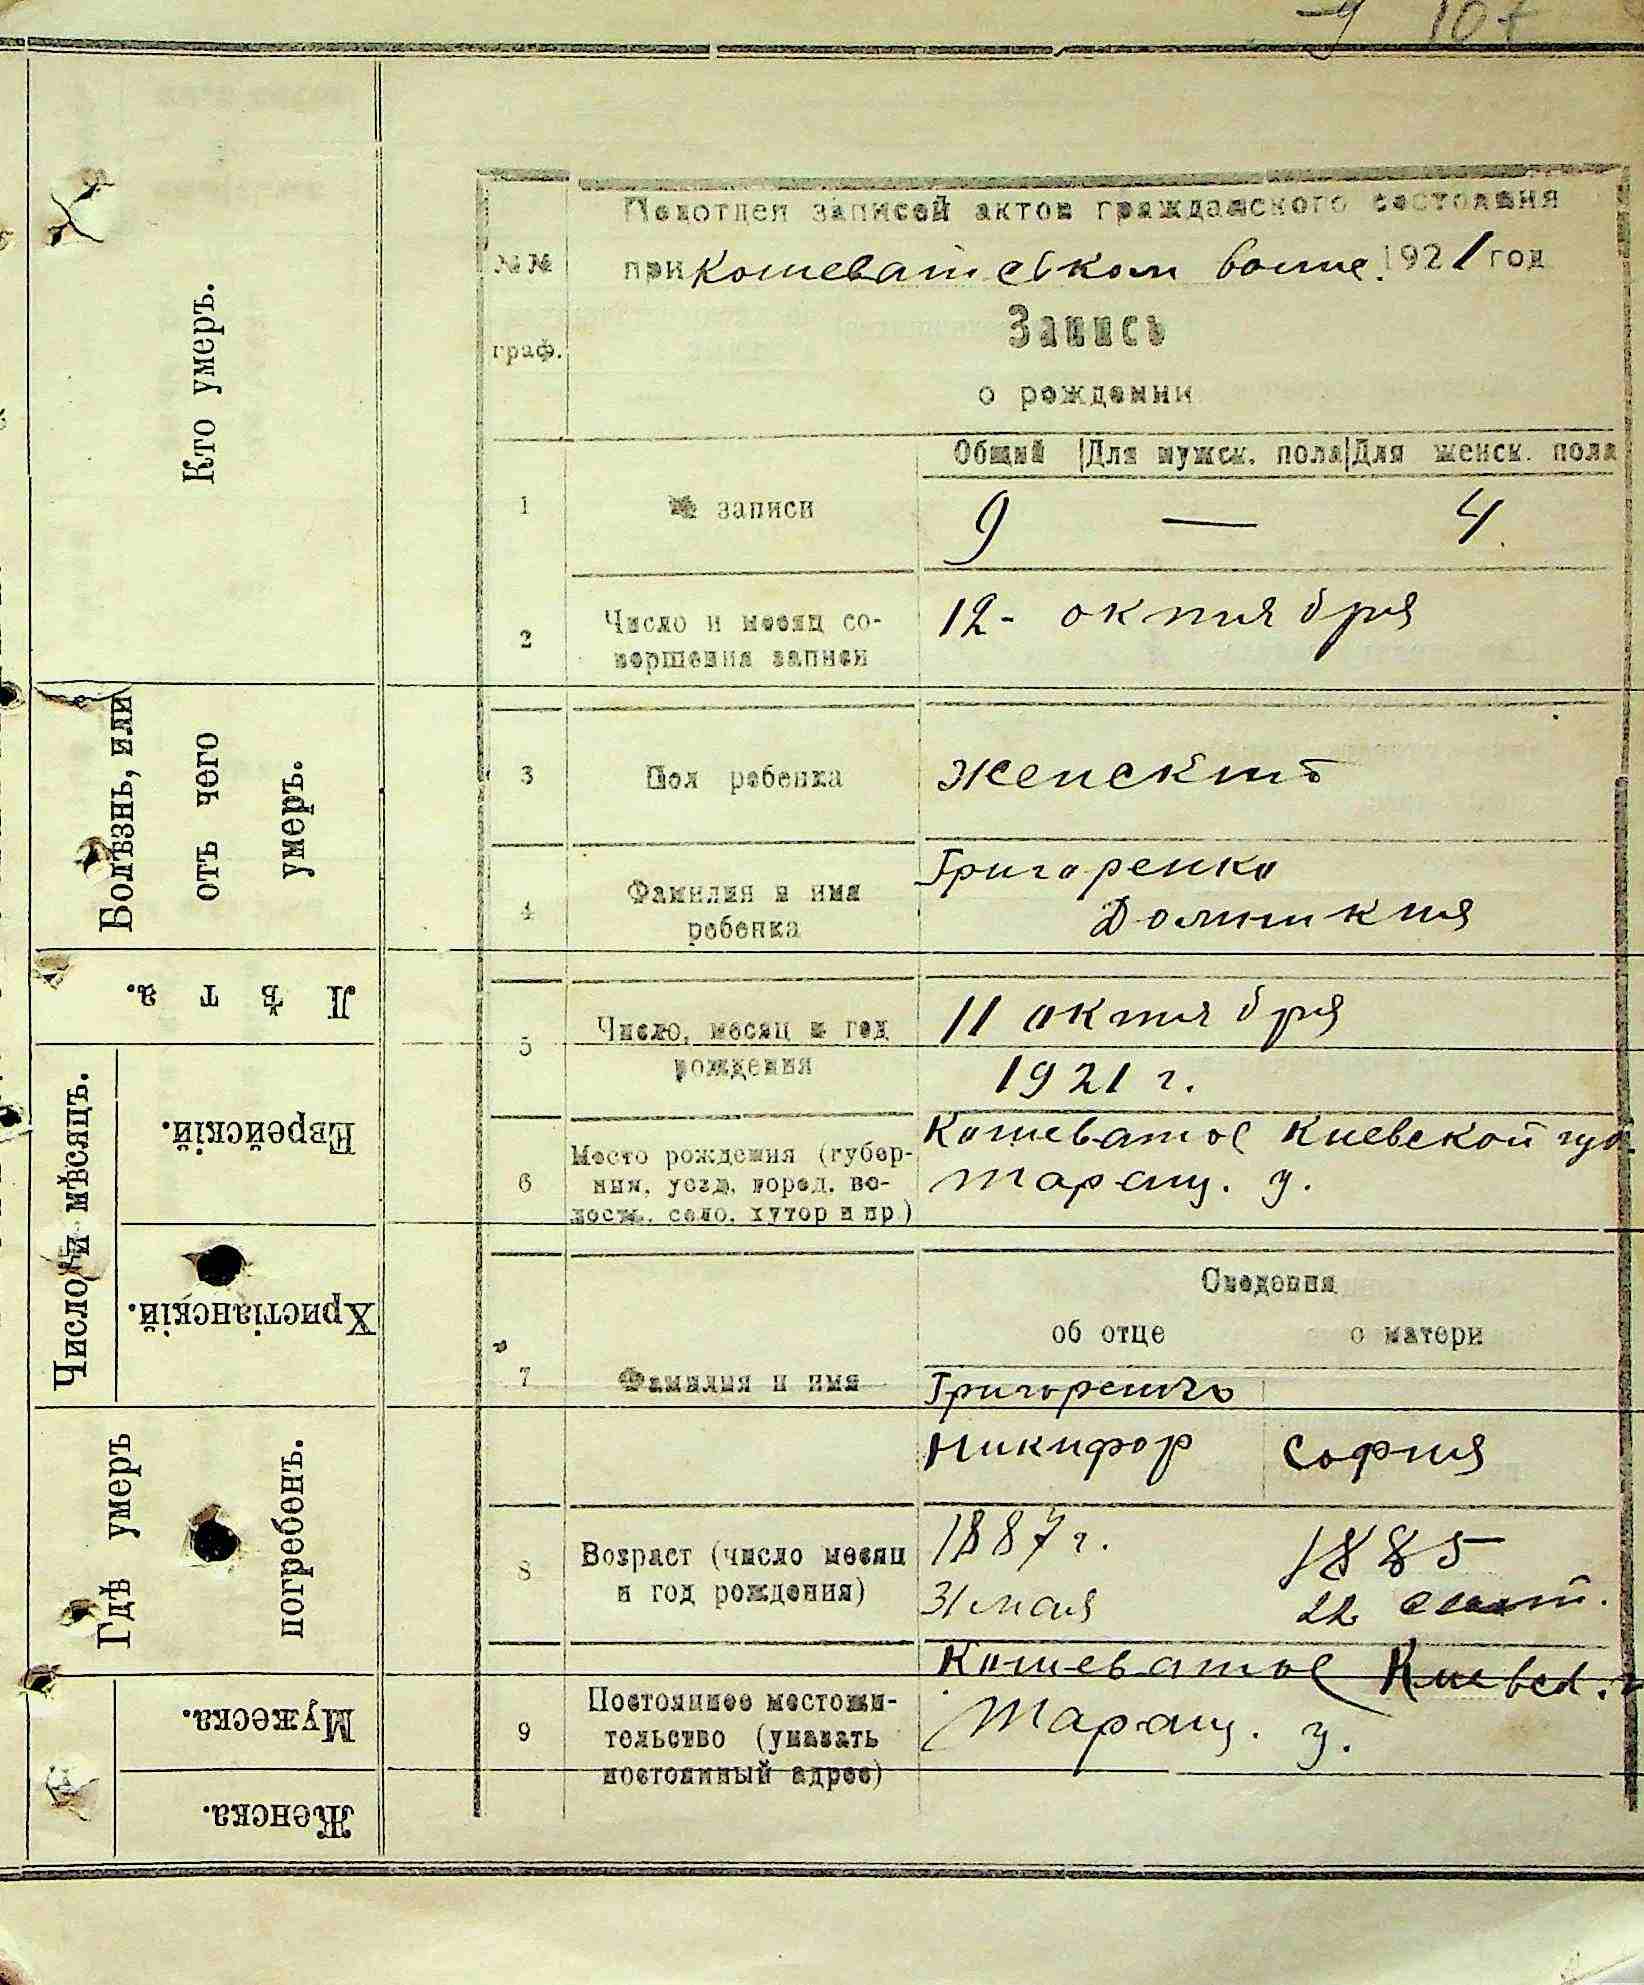 107
Подотдел записей актов гражданского состояния
при Кошеватевком волис. 1921 год
№№
граф.
Запись
о рождении
Общий Для мужск. пола Для женск. пола
1 № записи 9 — 4
2 Число и месяц со-
вершения записи
12 - октября
3 Пол ребенка женский
4 Фамилия и имя
ребенка
Григоренко
Домникия
5 Число, месяц и год
рождения
11 октября
1921 г.
6 Место рождения (губер-
ния, уезд, город, во-
лость, село, хутор и пр.)
Кошеватое Киевской губ.
Таращ. у.
Сведения
об отце о матери
7 Фамилия и имя
Григоренко
Никифор София
8 Возраст (число месяц
и год рождения)
1887 г. 1885
31 мая 22 сент.
9 Постоянное местожи-
тельство (указать
постоянный адрес)
Кошеватое Киевск.
Таращ. у.
Кто умеръ.
Болѣзнь, или
отъ чего
умеръ.
Лѣта.
Число и мѣсяцъ.
Еврейскій.
Христіанскій.
Гдѣ умеръ
погребенъ.
Мужеска.
Женска.